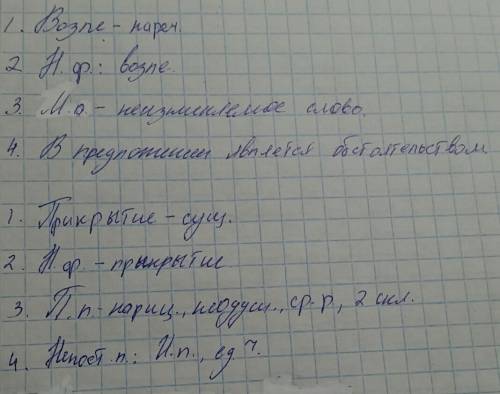 1. Возле - нареч.
2 Н. ф.: возле.
3. М. п. - неизменяемое слово.
4. В предложении является обстоятельством
1. Прикрытие - сущ.
2. Н. ф. - прикрытие
3. П. п - нариц., неодуш., ср. р., 2 скл.
4. Непост. п.: И. п., ед ч.